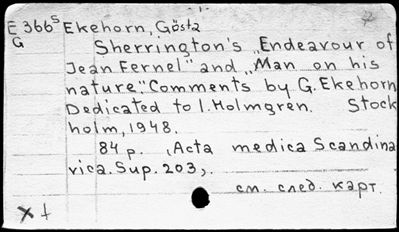 - 1 -
E 366 S Ekehorn, Gösta
G
Sherrington's „Endeavour of
Jean Fernel" and „Man on his
nature". Comments by G. Ekehorn
Dedicated to I. Holmgren. Stock
holm, 1948.
84 p. (Acta medica Scandina
vica. Sup. 203).
см. след. карт.